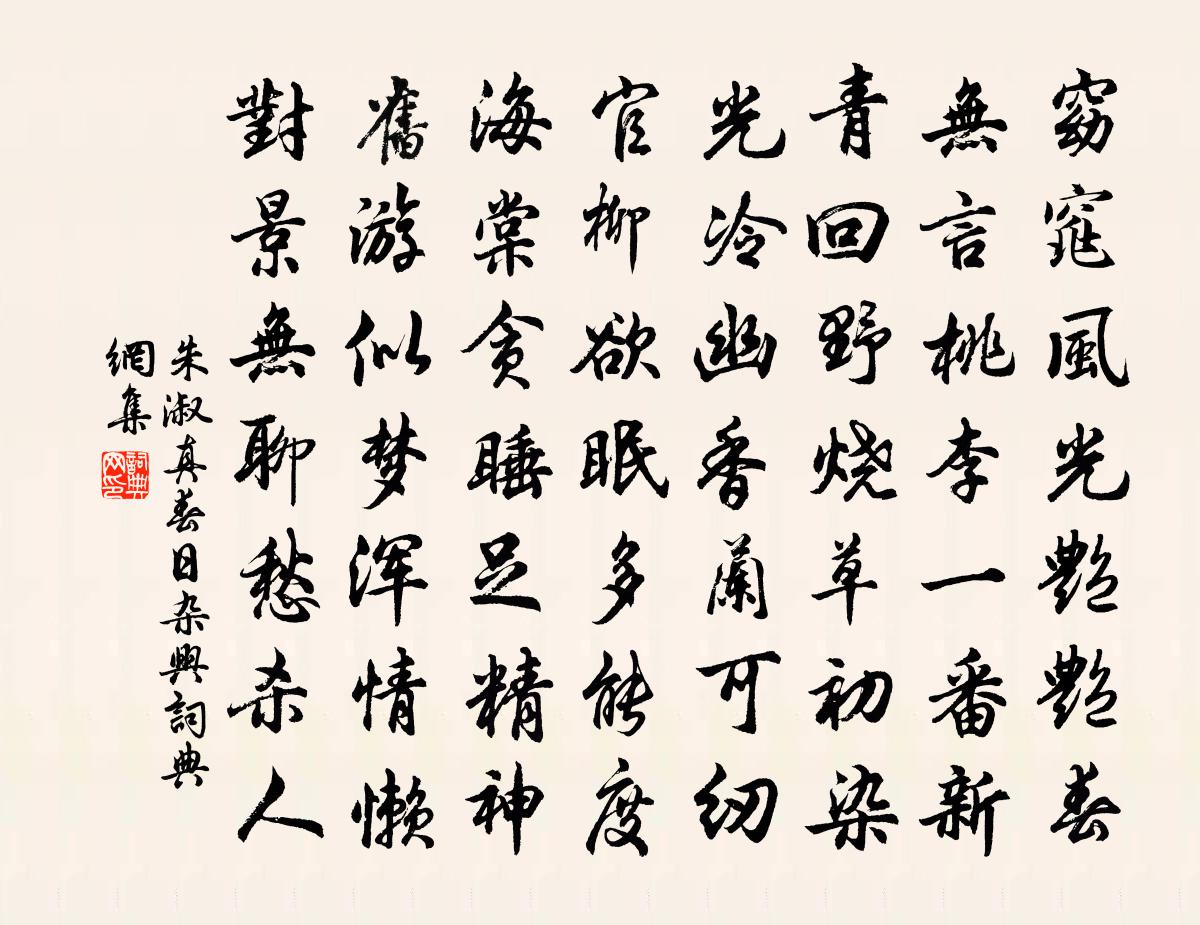 窈窕風光艷艷春
無言桃李一番新
青回野烧草初染
光冷幽香蘭可纫
官柳欲眠多能度
海棠贪睡足精神
舊游似梦浑情懒
對景無聊愁杀人
朱淑真春日杂興詞典
網集
詞典
网印